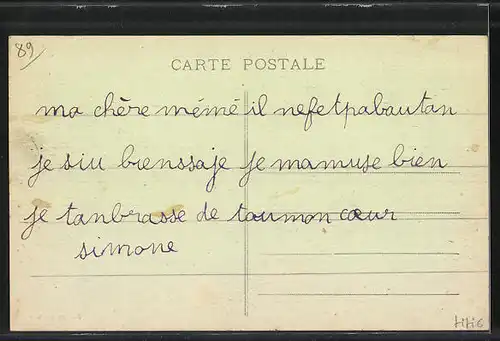 89
CARTE POSTALE
ma chère mémé il nefetpabautan
je siu bienssaje je mamuse bien
je tanbrasse de toumon cœur
simone